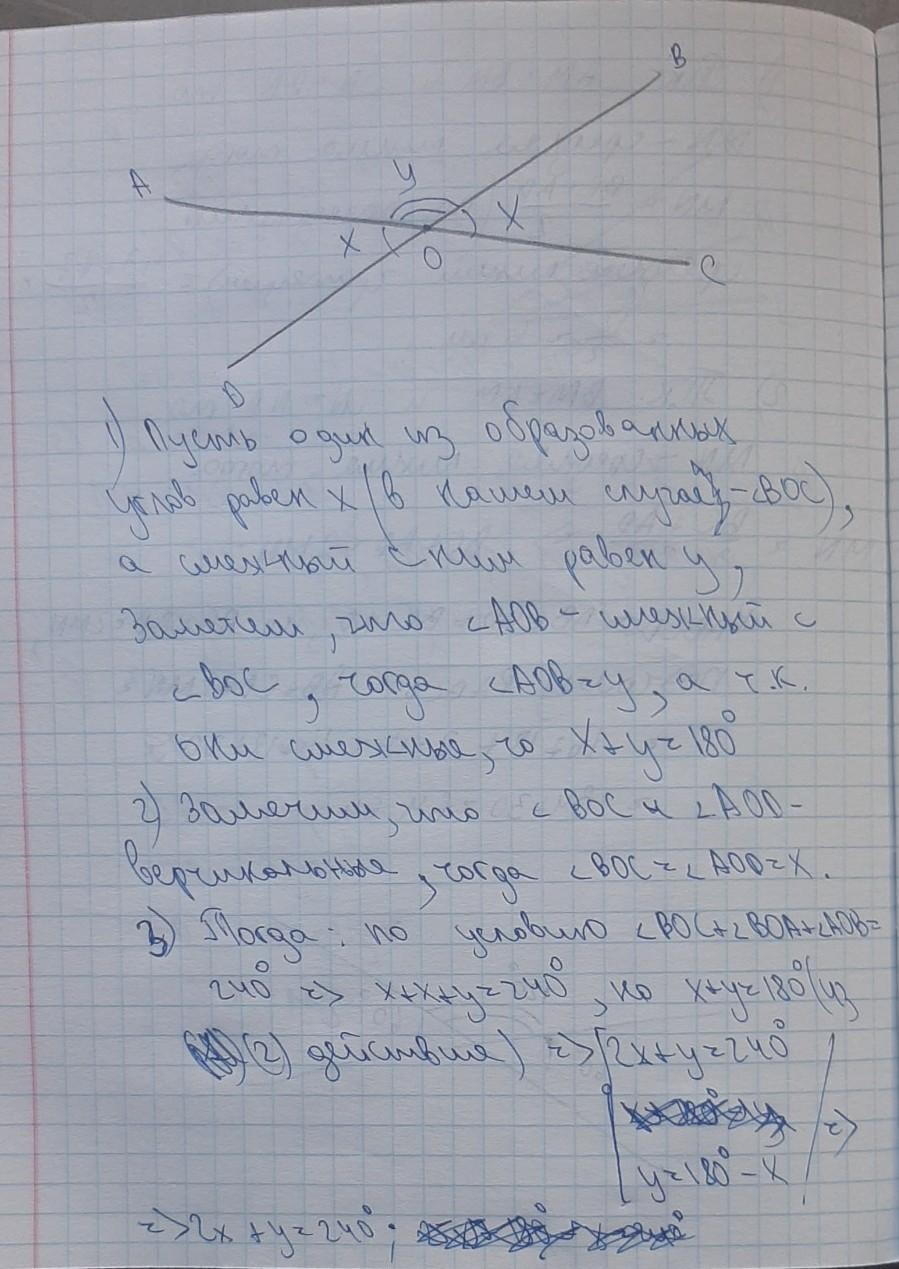 B
A
y
x
x
O
C
D
1) Пусть один из образованных
углов равен x (в нашем случае - ∠BOC),
а смежный с ним равен y,
Заметим, что ∠AOB - смежный с
∠BOC, тогда ∠AOB = y, а т.к.
они смежные, то x+y=180°
2) Заметим, что ∠BOC и ∠AOD -
вертикальные, тогда ∠BOC=∠AOD=x.
3) Тогда: по условию ∠BOC+∠BOA+∠AOB=
240° => x+x+y=240°, но x+y=180° (из
(2) действия) => 2x+y=240°
y=180°-x =>
=> 2x+y=240°;